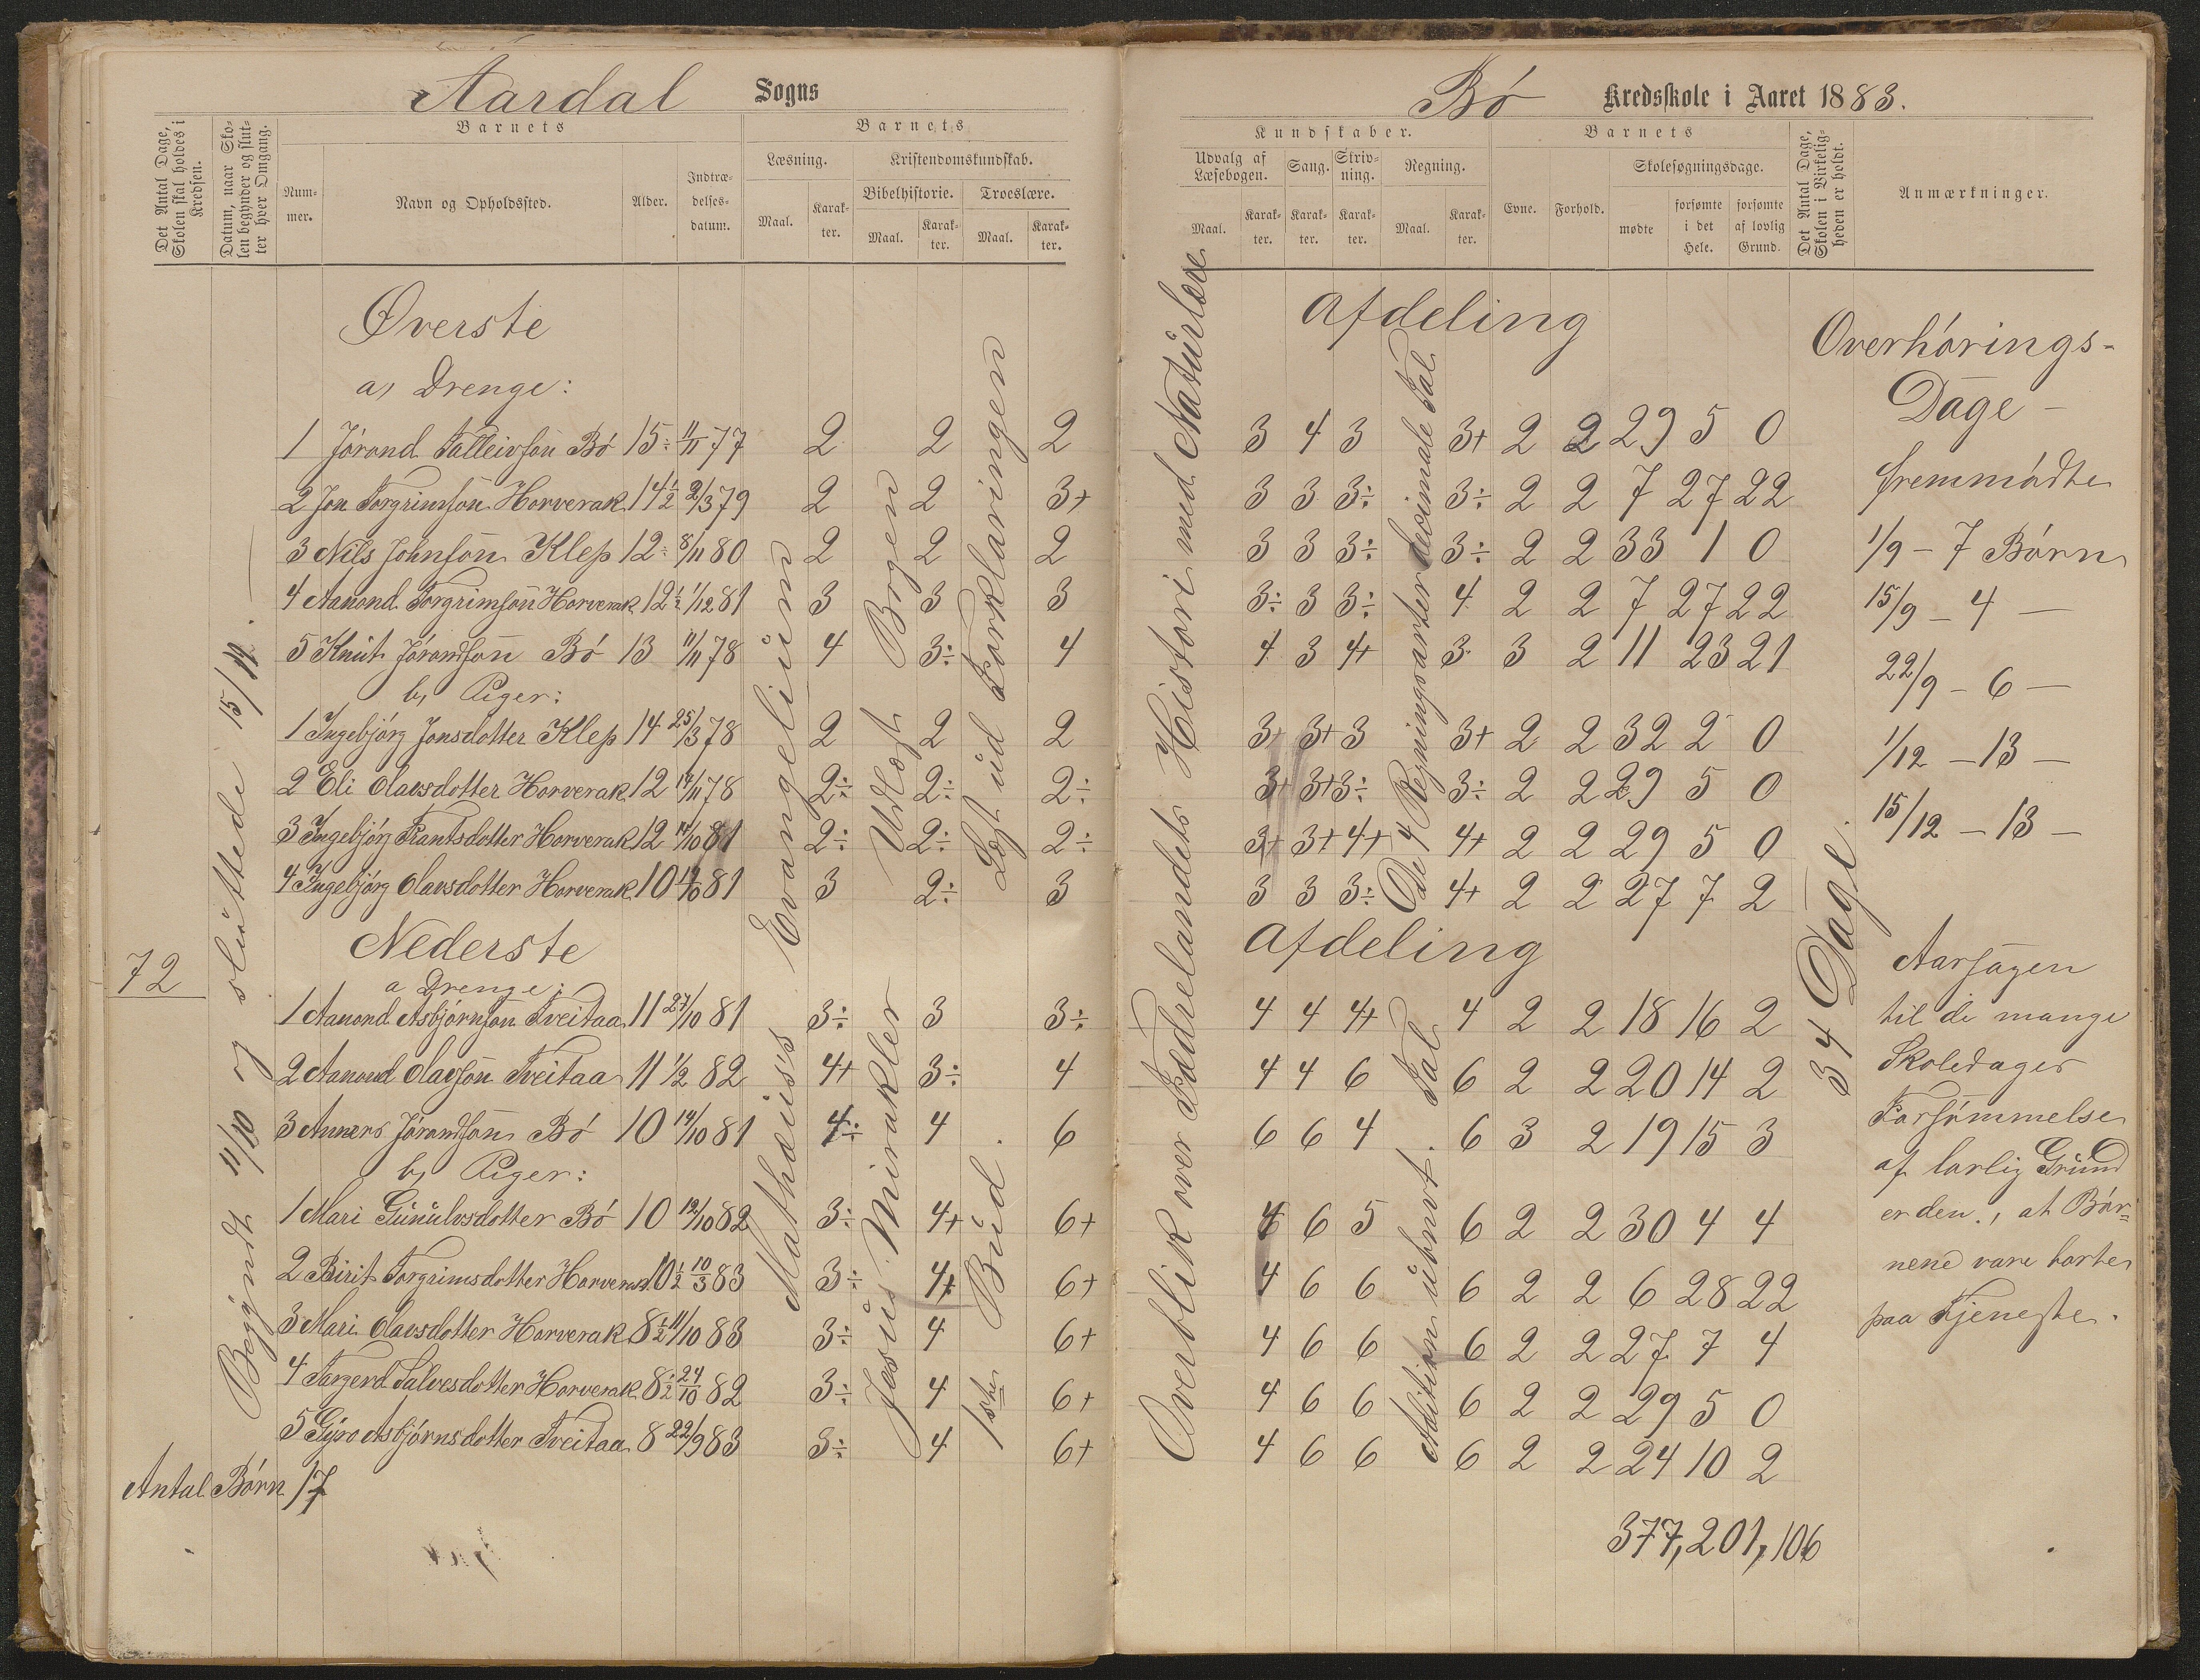 Aardal Sogns
Bø Kredsskole i Aaret 1883.
Det Antal Dage, Skolen skal holdes i Kredsen.
Datum, naar Skolen begynder og slutter hver Omgang.
Barnets
Nummer.
Navn og Opholdssted.
Alder.
Indtrædelsesdatum.
Barnets
Læsning.
Kristendomskundskab.
Bibelhistorie.
Troeslære.
Maal. Karakter. Maal. Karakter. Maal. Karakter.
Kundskaber.
Udvalg af Læsebogen.
Sang.
Skrivning.
Regning.
Maal. Karakter. Karakter. Karakter. Maal. Karakter.
Barnets
Evne. Forhold.
Skolesøgningsdage.
mødte
forsømte i det Hele.
forsømte af lovlig Grund.
Det Antal Dage, Skolen i Virkeligheden er holdt.
Anmærkninger.
Øverste Afdeling
a, Drenge:
1 Jørand Talleivsøn Bø 15÷ 11/11 77 2 2 2 3 4 3 3+ 2 2 29 5 0
2 Jon Torgrimsøn Horverak 14½ 2/3 79 2 2 3+ 3 3 3÷ 3÷ 2 2 7 27 22
3 Nils Johnsøn Klep 12÷ 8/11 80 2 2 2 3 3 3÷ 3÷ 2 2 33 1 0
4 Aanond Torgrimsøn Horverak 12½ 1/12 81 3 3 3 3÷ 3 3÷ 4 2 2 7 27 22
5 Knut Jørandsøn Bø 13 11/11 78 4 3÷ 4 4 3 4+ 3 3 2 11 23 21
b, Piger:
1 Ingebjørg Jonsdotter Klep 14 25/3 78 2 2 2 3+ 3+ 3 3+ 2 2 32 2 0
2 Eli Olavsdotter Horverak 12 14/11 78 2÷ 2÷ 2÷ 3+ 3+ 3÷ 3÷ 2 2 29 5 0
3 Ingebjørg Frantsdotter Horverak 12 14/10 81 2÷ 2÷ 2÷ 3+ 3+ 4+ 4+ 2 2 29 5 0
4 Ingebjørg Olavsdotter Horverak 10 14/10 81 3 2÷ 3 3 3 3÷ 4+ 2 2 27 7 2
Nederste Afdeling
72
a Drenge:
1 Aanond Asbjørnsøn Tveitaa 11 27/10 81 3÷ 3 3÷ 4 4 4+ 4 2 2 18 16 2
2 Aanond Olavsøn Tveitaa 11 1/2 82 4+ 3÷ 4 4 4 6 6 2 2 20 14 2
3 Anners Jørandsøn Bø 10 14/10 81 4÷ 4 6 6 6 4 6 3 2 19 15 3
b, Piger:
1 Mari Gunulvsdotter Bø 10 12/10 82 3÷ 4+ 6+ 4 6 5 6 2 2 30 4 4
2 Birit Torgrimsdotter Horverak 10½ 10/3 83 3÷ 4+ 6+ 4 6 6 6 2 2 6 28 22
3 Mari Olavsdotter Horverak 8½ 11/10 83 3÷ 4 6+ 4 6 6 6 2 2 27 7 4
4 Targerd Salvesdotter Horverak 8½ 24/10 82 3÷ 4 6+ 4 6 6 6 2 2 29 5 0
5 Gyro Asbjørnsdotter Tveitaa 8 22/9 83 3÷ 4 6+ 4 6 6 6 2 2 24 10 2
Antal Børn 17
377, 201, 106
Begyndt 11/10 og sluttede 15/12.
Mathæuss Evangelium
Jesus Mirakler
Udlagt Bogen
1ste Bud.
Lagt ud Forklaringen
Overblik over Fædrelandets Historie med Naturlære
De 4 Regningsarter decimale Tal
Addition ubnevt. Tal
34 Dage.
Overhørings-
Dage –
fremmødte
1/9 – 7 Børn
15/9 – 4 –
22/9 – 6 –
1/12 – 13 –
15/12 – 13 –
Aarsagen
til de mange
Skoledages
Forsømmelse
af lovlig Grund
er den, at Bør-
nene vare borte
paa Tjeneste.